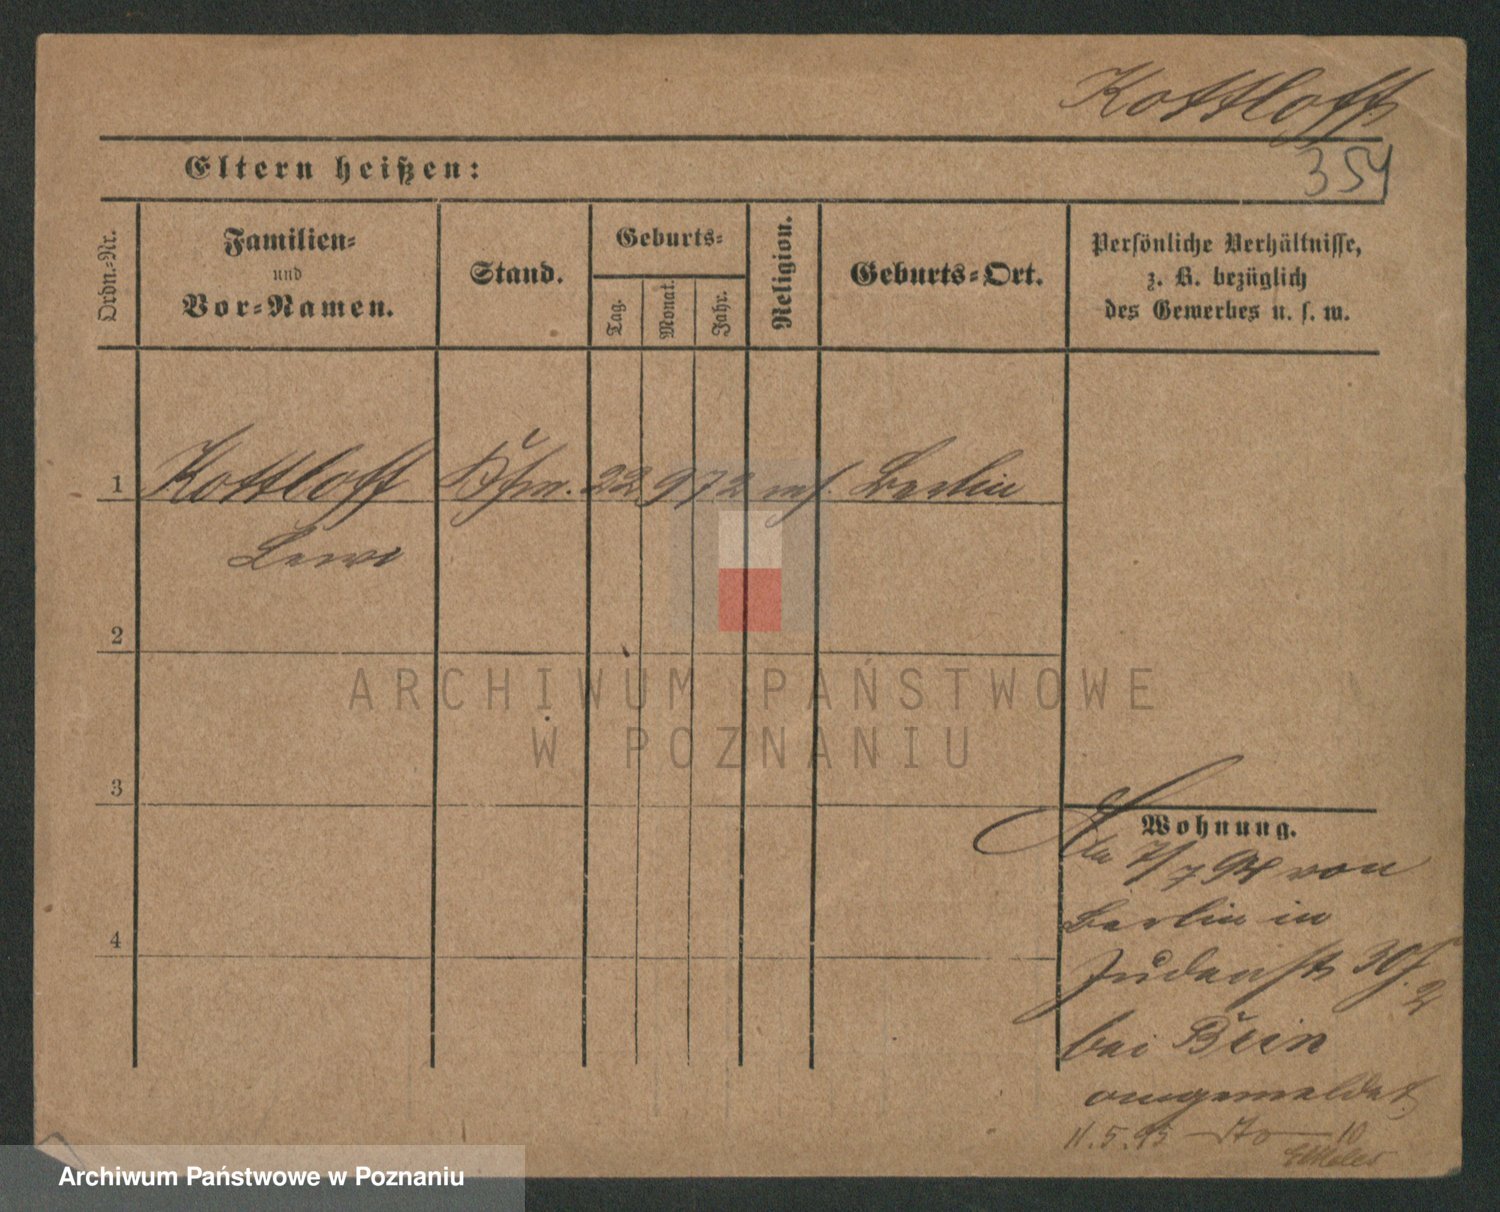 Kottloff
354
Eltern heißen:
Ordn.-Nr.
Familien-
und
Vor-Namen.
Stand.
Geburts-
Tag.
Monat.
Jahr.
Religion.
Geburts-Ort.
Persönliche Verhältnisse,
z. B. bezüglich
des Gewerbes u. s. w.
1 Kottloff 22 9 72 Berlin
2
3
4
Wohnung.
7/7 94 von
Berlin in
Judenstr 30
bei
angemeldet
11.5.95
ARCHIWUM PAŃSTWOWE
W POZNANIU
Archiwum Państwowe w Poznaniu